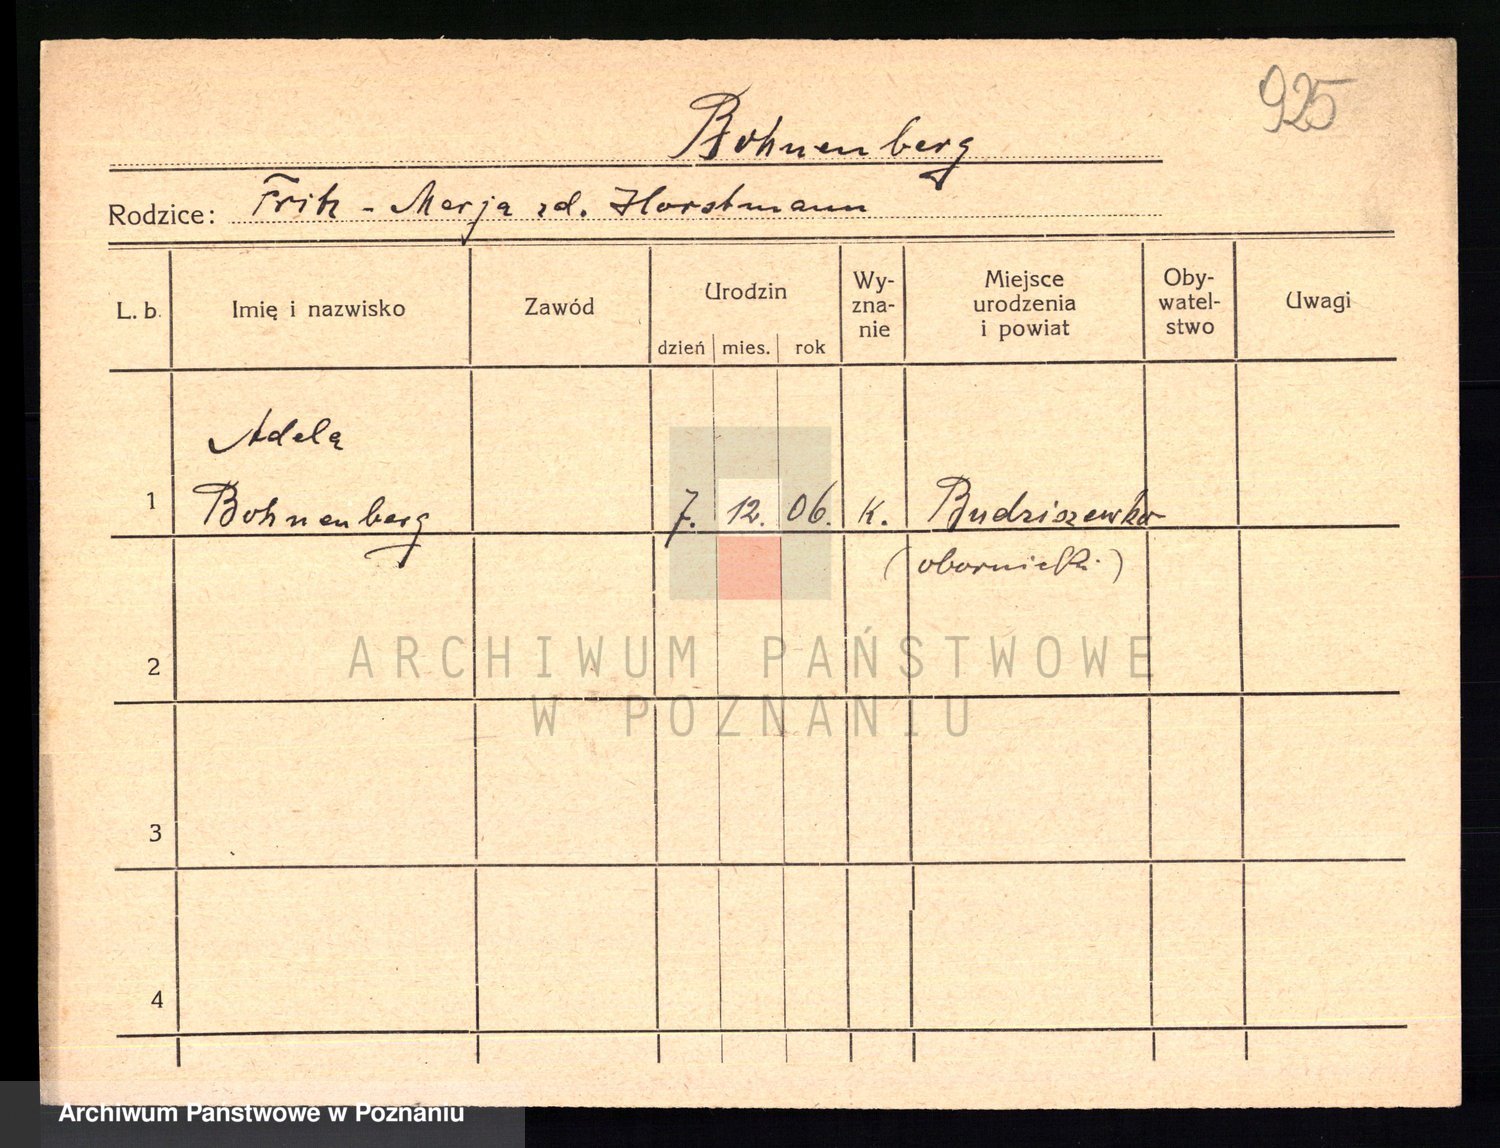 925
Bohnenberg
Rodzice: Fritz - Marja zd. Horstmann
L. b. Imię i nazwisko Zawód Urodzin dzień mies. rok Wy-
zna-
nie Miejsce
urodzenia
i powiat Oby-
watel-
stwo Uwagi
Adela
1 Bohnenberg 7. 12. 06. k. Budziszewko
(obornicki)
2
ARCHIWUM PAŃSTWOWE
W POZNANIU
3
4
Archiwum Państwowe w Poznaniu